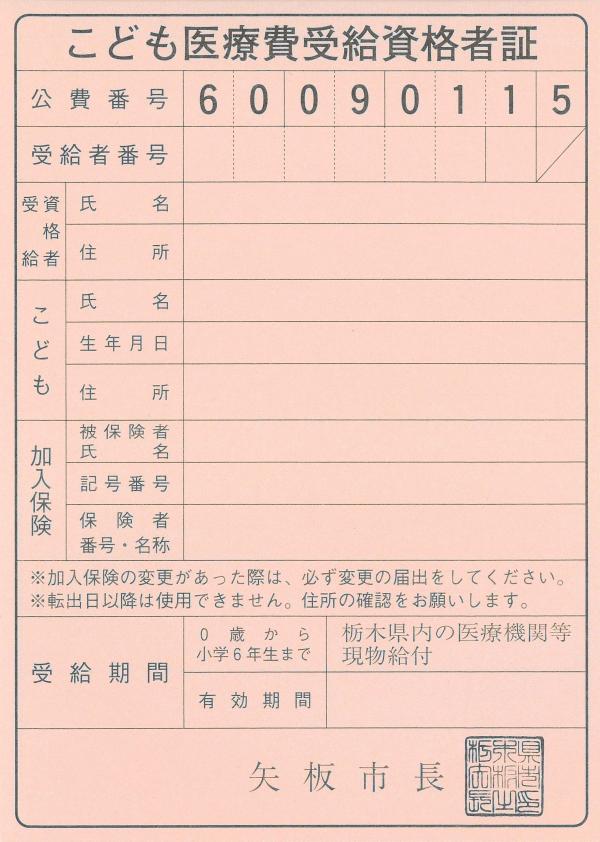 こども医療費受給資格者証
公費番号 6 0 0 9 0 1 1 5
受給者番号
受給資格者
氏名
住所
こども
氏名
生年月日
住所
加入保険
被保険者
氏名
記号番号
保険者
番号・名称
※加入保険の変更があった際は、必ず変更の届出をしてください。
※転出日以降は使用できません。住所の確認をお願いします。
受給期間
0歳から
小学6年生まで
栃木県内の医療機関等
現物給付
有効期間
矢板市長